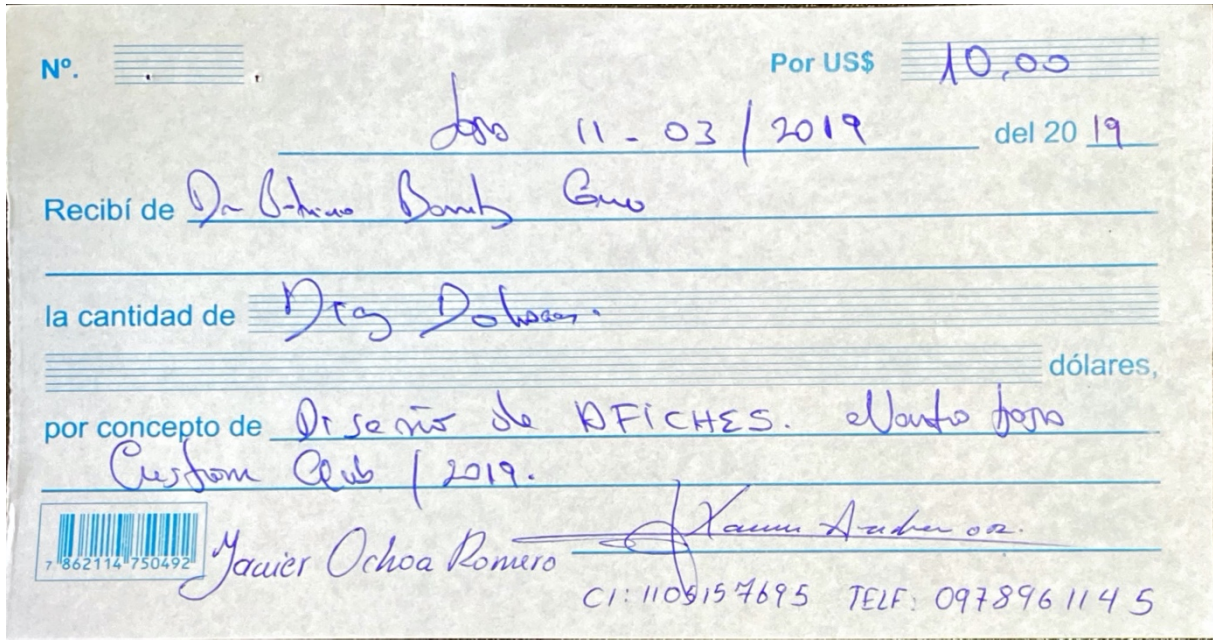 Nº. Por US$ 10,00
Loja 11-03/2019 del 2019
Recibí de Dr.
la cantidad de Diez Dolares.
dólares,
por concepto de Diseño de AFICHES. Loja
Custom Club / 2019.
7 862114 750492 Javier Ochoa Romero
CI: 1105157695 TELF: 0978961145